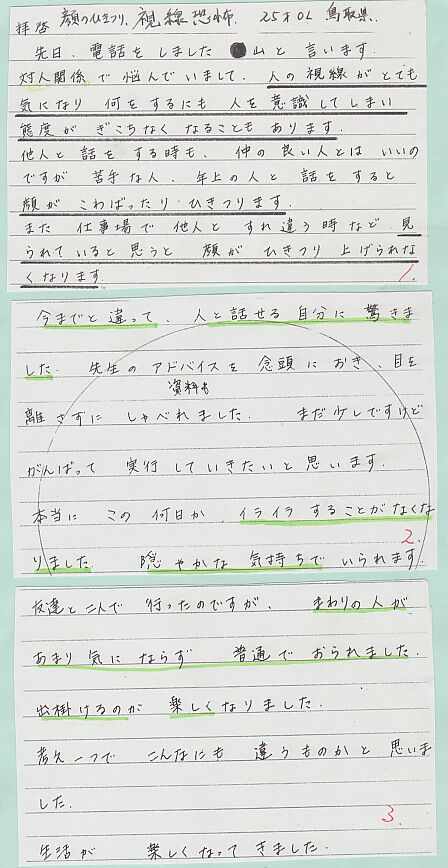 拝啓 顔のひきつり、視線恐怖、25才OL 鳥取県、
先日、電話をしました ●山と 言います.
対人関係で悩んでいまして、人の視線がとても
気になり 何をするにも 人を意識してしまい
態度が ぎこちなく なることも あります.
他人と 話を する時も、仲の良い人とは いいの
ですが 苦手な人、年上の人と 話を すると
顔が こわばったり、ひきつります.
また 仕事場で 他人と すれ違う時など、見
られていると思うと 顔が ひきつり 上げられな
くなります.
1.
今までと違って、人と話せる自分に 驚きま
した. 先生の アドバイスを 念頭に おき、目を
資料も
離さずに しゃべれました. まだ少しですけど
がんばって 実行していきたいと思います.
本当に この 何日か、イライラすることがなくな
りました 隠やかな 気持ちで いられます.
2.
友達と二人で 行ったのですが、 まわりの人が
あまり気にならず 普通で おられました.
出掛けるのが 楽しくなりました.
考え一つで こんなにも 違うものかと 思いま
した.
3.
生活が 楽しくなって きました.